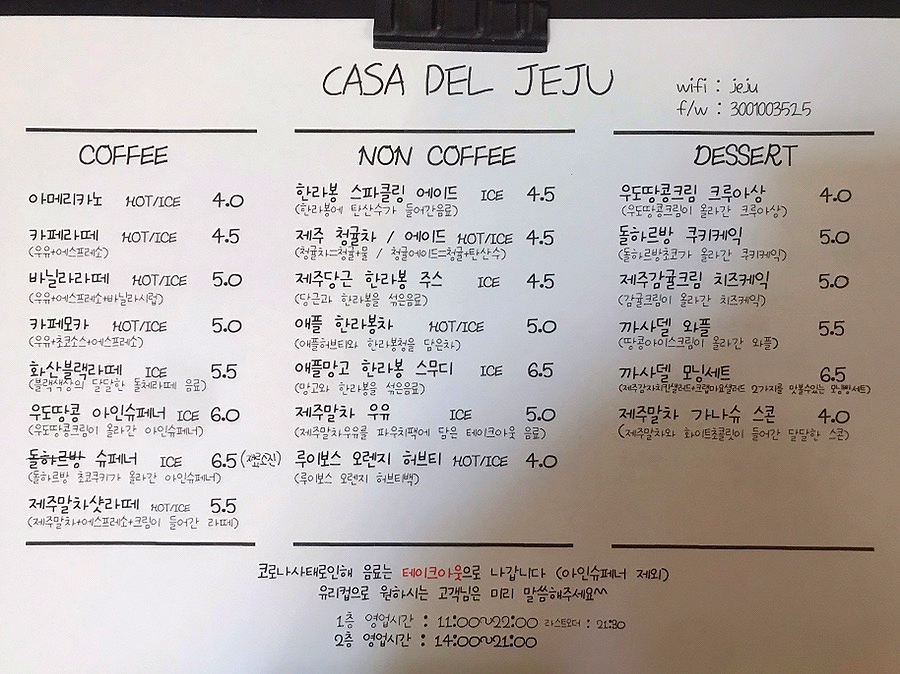 CASA DEL JEJU
wifi : jeju
f/w : 3001003525
COFFEE
아메리카노 HOT/ICE 4.0
카페라떼 HOT/ICE 4.5
(우유+에스프레소)
바닐라라떼 HOT/ICE 5.0
(우유+에스프레소+바닐라시럽)
카페모카 HOT/ICE 5.0
(우유+초코소스+에스프레소)
화산블랙라떼 ICE 5.5
(블랙색상의 달달한 돌체라떼 음료)
우도땅콩 아인슈페너 ICE 6.0
(우도땅콩크림이 올라간 아인슈페너)
돌하르방 슈페너 ICE 6.5 (재료소진)
(돌하르방 초코쿠키가 올라간 아인슈페너)
제주말차샷라떼 HOT/ICE 5.5
(제주말차+에스프레소+크림이 들어간 라떼)
NON COFFEE
한라봉 스파클링 에이드 ICE 4.5
(한라봉에 탄산수가 들어간음료)
제주 청귤차 / 에이드 HOT/ICE 4.5
(청귤차=청귤+물 / 청귤에이드=청귤+탄산수)
제주당근 한라봉 주스 ICE 4.5
(당근과 한라봉을 섞은음료)
애플 한라봉차 HOT/ICE 5.0
(애플허브티와 한라봉청을 담은차)
애플망고 한라봉 스무디 ICE 6.5
(망고와 한라봉을 섞은음료)
제주말차 우유 ICE 5.0
(제주말차우유를 파우치팩에 담은 테이크아웃 음료)
루이보스 오렌지 허브티 HOT/ICE 4.0
(루이보스 오렌지 허브티백)
DESSERT
우도땅콩크림 크루아상 4.0
(우도땅콩크림이 올라간 크루아상)
돌하르방 쿠키케익 5.0
(돌하르방초코가 올라간 쿠키케익)
제주감귤크림 치즈케익 5.0
(감귤크림이 올라간 치즈케익)
까사델 와플 5.5
(땅콩아이스크림이 올라간 와플)
까사델 모닝세트 6.5
(제주감자치킨샐러드+크랩마요샐러드 2가지를 맛볼수있는 모닝빵세트)
제주말차 가나슈 스콘 4.0
(제주말차와 화이트초콜릿이 들어간 달달한 스콘)
코로나사태로인해 음료는 테이크아웃으로 나갑니다 (아인슈페너 제외)
유리컵으로 원하시는 고객님은 미리 말씀해주세요^^
1층 영업시간 : 11:00~22:00 라스트오더 : 21:30
2층 영업시간 : 14:00~21:00